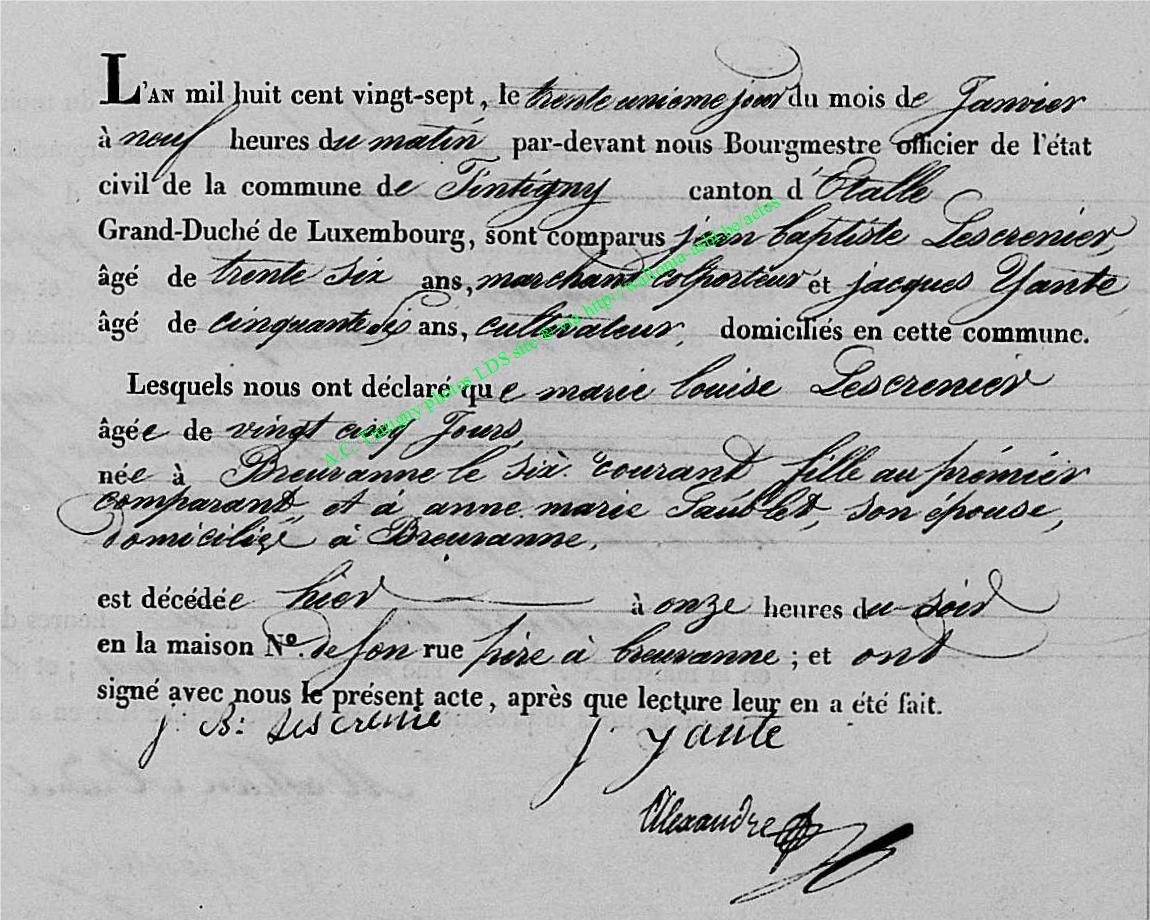 L'AN mil huit cent vingt-sept, le trente unieme jour du mois de Janvier
à neuf heures du matin par-devant nous Bourgmestre officier de l'état
civil de la commune de Tintigny canton d'Etalle
Grand-Duché de Luxembourg, sont comparus jean baptiste Lescrenier,
âgé de trente six ans, marchand colporteur et jacques Yante,
âgé de cinquante ans, cultivateur, domiciliés en cette commune.
Lesquels nous ont déclaré que marie louise Lescrenier
âgée de vingt cinq Jours,
née à Breuvanne le six courant fille au prémier
comparant, et à anne marie son épouse,
domicilié à Breuvanne.
est décédée hier à onze heures du soir
en la maison N°. de son rue père à breuvanne ; et ont
signé avec nous le présent acte, après que lecture leur en a été fait.
j. B: Lescrenie j yante
Alexandre
A.C. Tintigny photos LDS site & via http://wallonia-asbl.be/actes